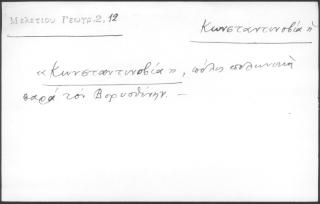 Μελετίου Γεωγρ. 2, 12
Κωνσταντινοβία ἡ
« Κωνσταντινοβία ἡ, πόλις πολωνικὴ
παρὰ τὸν Βορυσθένην. —